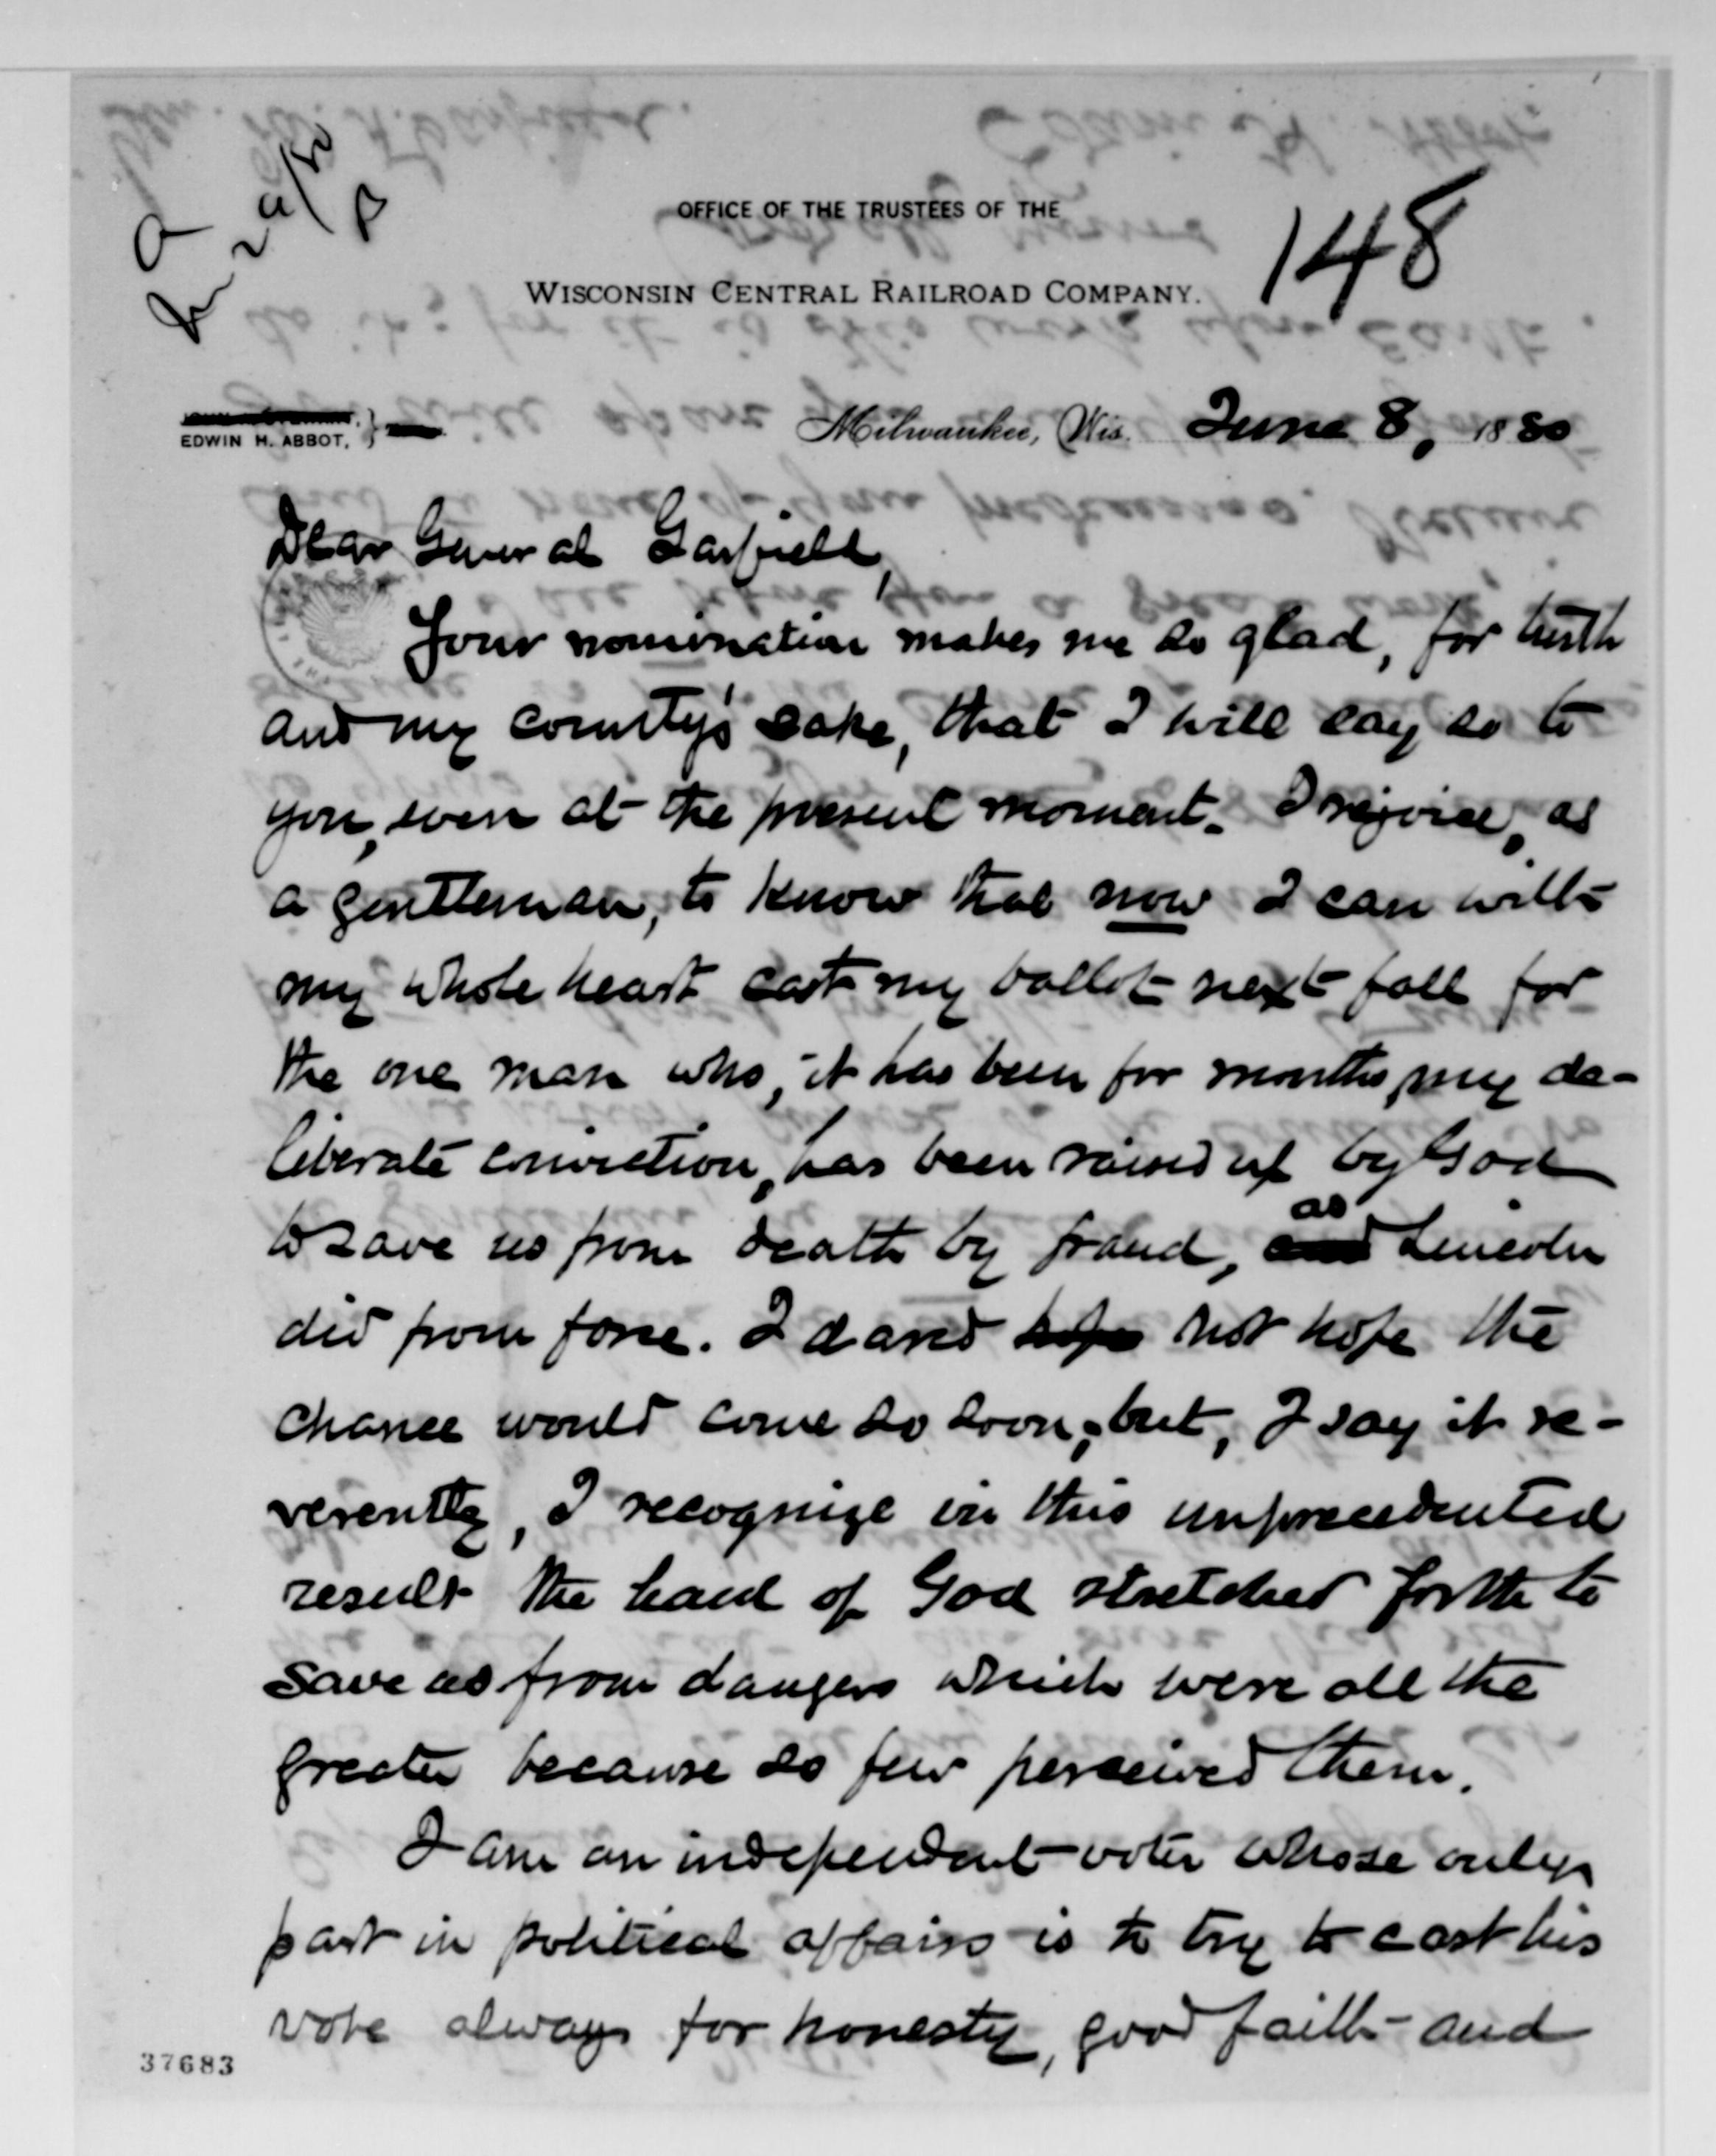 OFFICE OF THE TRUSTEES OF THE
148
WISCONSIN CENTRAL RAILROAD COMPANY.
EDWIN H. ABBOT,
Milwaukee, Wis. June 8, 1880
Dear General Garfield,
Your nomination makes me so glad, for truth
and my country's sake, that I will say so to
you, even at the present moment. I rejoice, as
a gentleman, to know that now I can with
my whole heart cast my ballot next fall for
the one man who, it has been for months, my de-
liberate conviction, has been raised up by God
to save us from death by fraud, as Lincoln
did from force. I dared hope not hope the
chance would come so soon; but, I say it re-
verently, I recognize in this unprecedented
result the hand of God stretched forth to
save us from dangers which were all the
greater because so few perceived them.
I am an independent voter whose only
part in political affairs is to try to cast his
vote always for honesty, good faith and
37683